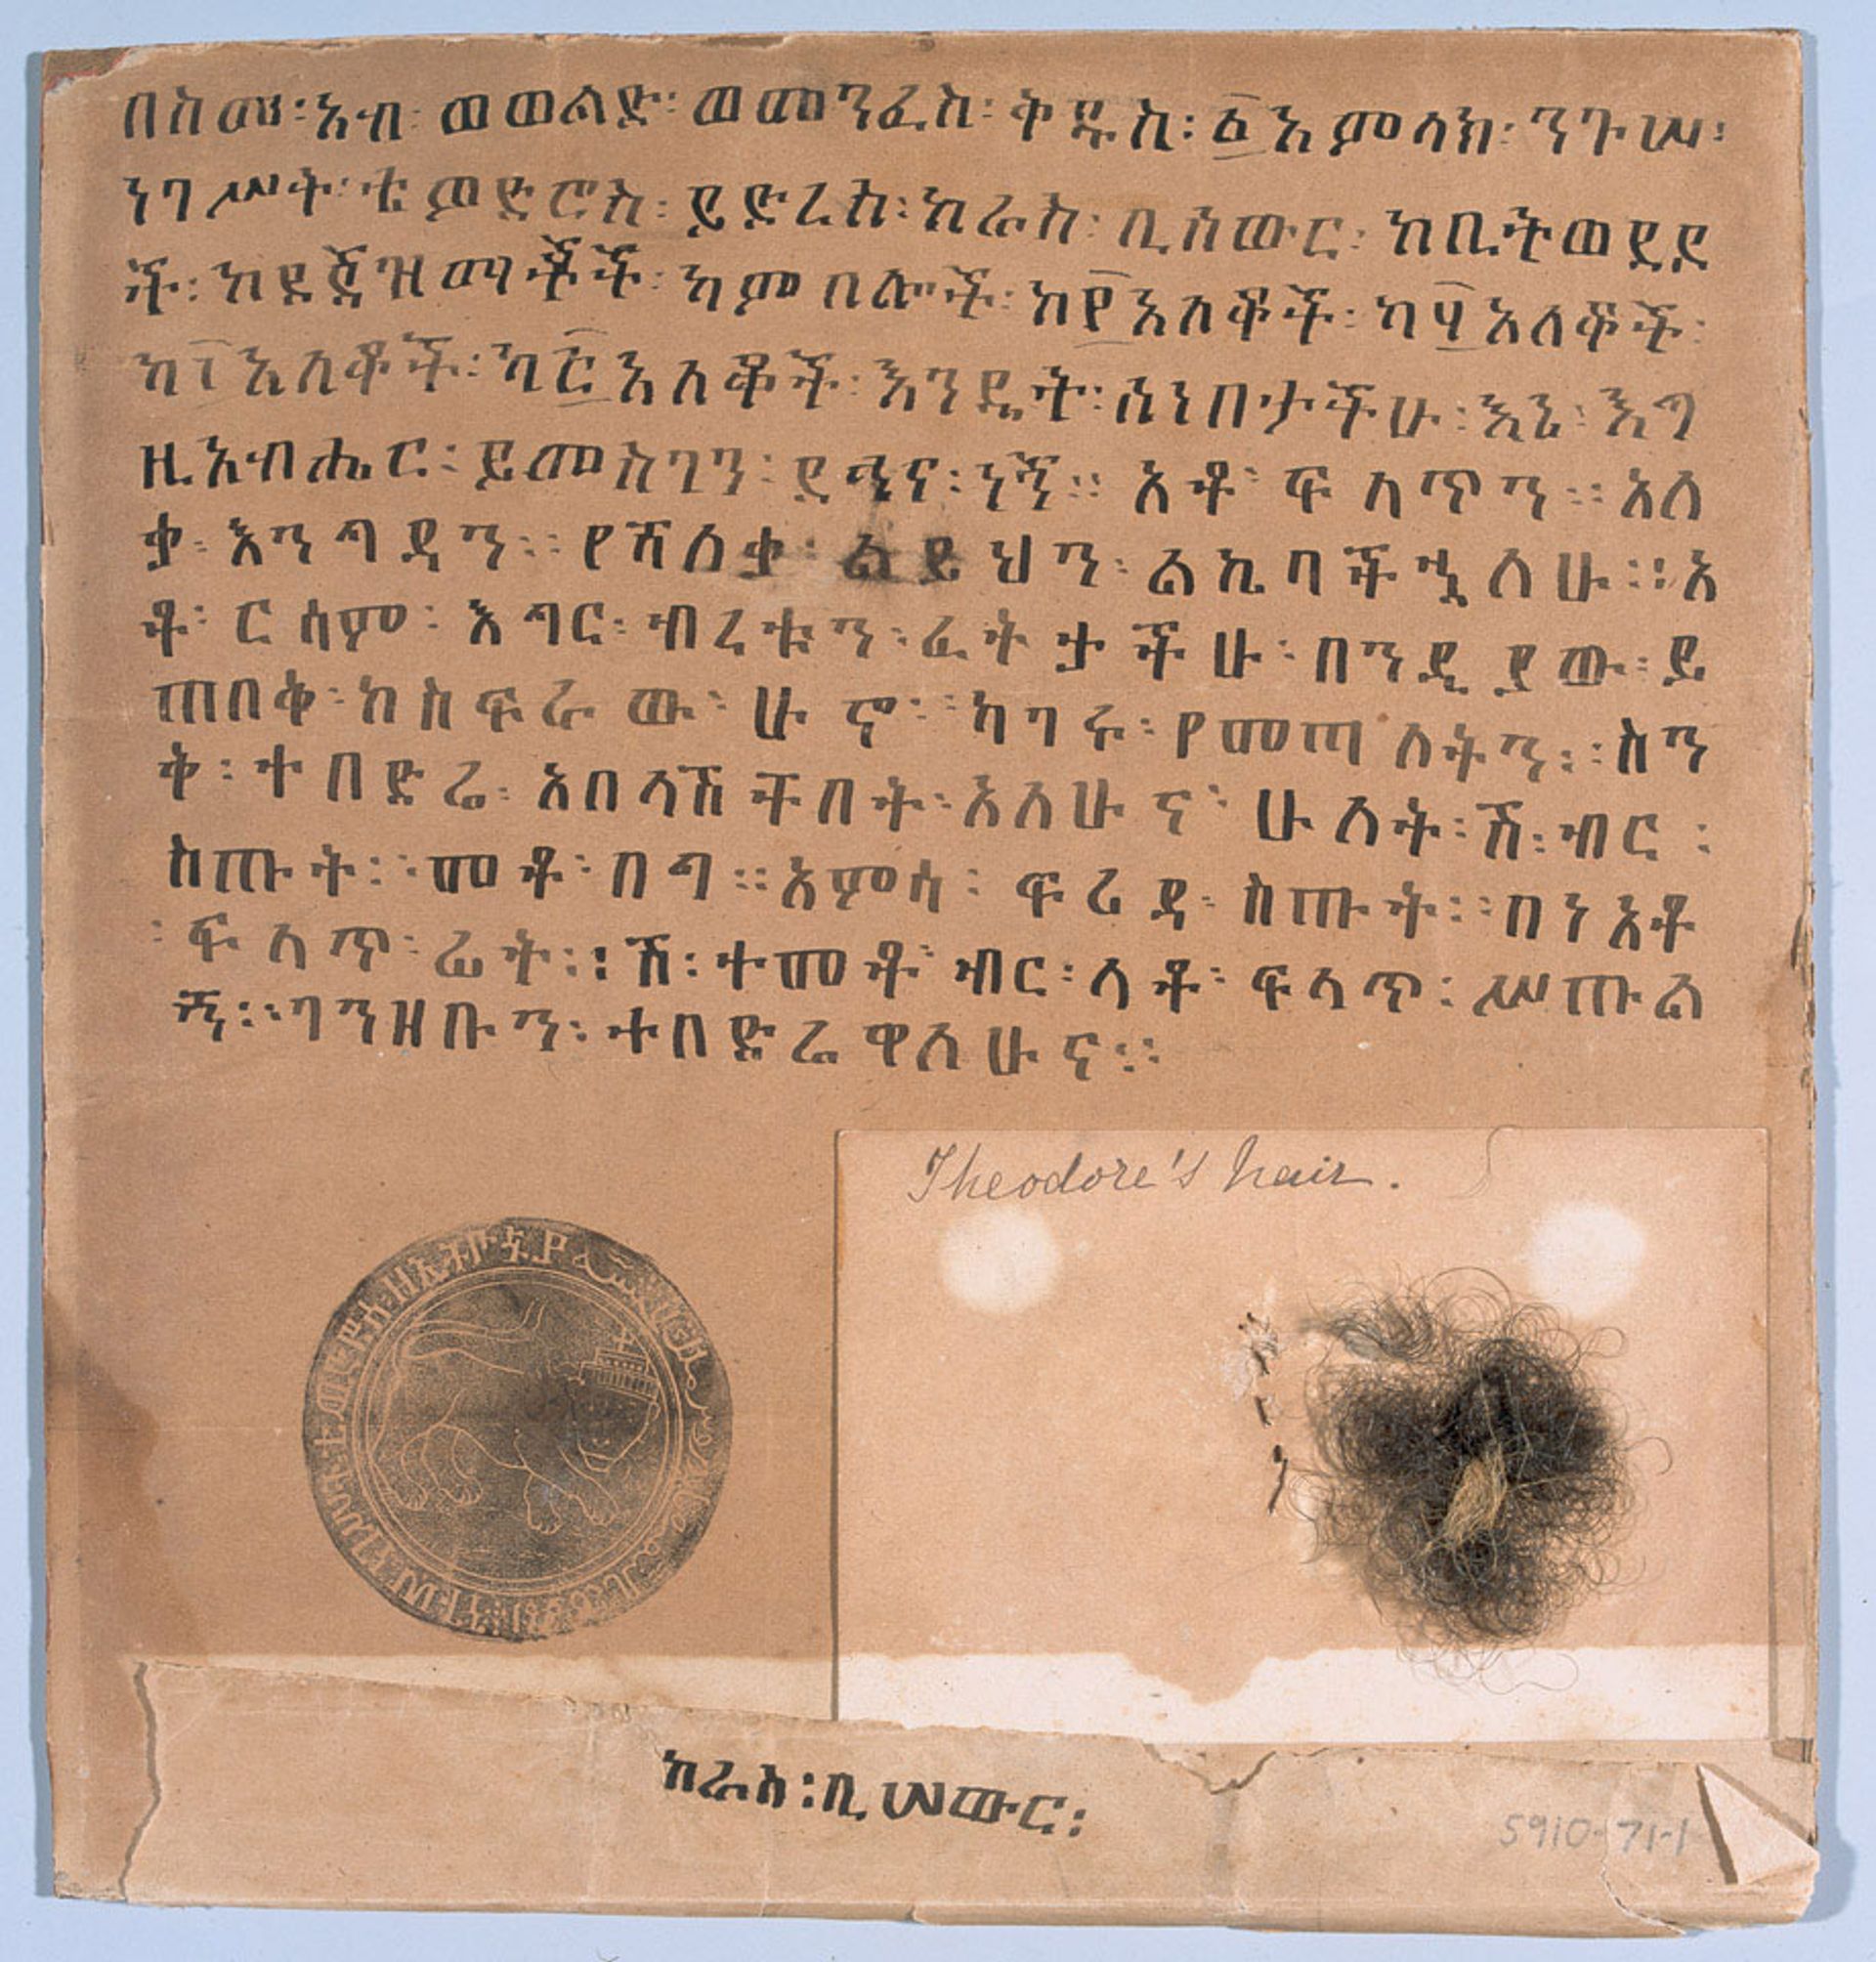 በስመ፡አብ፡ ወወልድ፡ ወመንፈስ፡ ቅዱስ፡ ፩አምላክ፡ ንጉሠ፡
ነገሥት፡ ቴዎድሮስ፡ ይድረስ፡ ከራስ፡ ቢሰውር፡ ከቢትወደደ
ች፡ ከደጃዝማቾች፡ ካምበሎች፡ ከ፼አለቆች፡ ካ፶አለቆች፡
ካ፲አለቆች፡ ካ፭አለቆች፡ እንዴት፡ ሰነበታችሁ፡ እኔ፡ እግ
ዚአብሔር፡ ይመስገን፡ ደኅና፡ ነኝ። አቶ፡ ፍላጥን። አለ
ቃ፡ እንግዳን። የሻለቃ፡ ልይህን፡ ልኬባችኋለሁ። አ
ቶ፡ ርሳም፡ እግር፡ ብረቱን፡ ፈትታችሁ፡ በንዲያው፡ ይ
ጠበቅ፡ ከስፍራው፡ ሁኖ። ካገሩ፡ የመጣለትን። ስን
ቅ፡ ተበድሬ፡ አበላሽቸበት፡ አለሁና፡ ሁለት፡ ሽ፡ ብር፡
ስጡት። መቶ፡ በግ። አምሳ፡ ፍሪዳ፡ ስጡት። በነአቶ
፡ ፍላጥ፡ ፊት። ሽ፡ ተመቶ፡ ብር፡ ላቶ፡ ፍላጥ፡ ሥጡል
ኝ። ገንዘቡን፡ ተበድሬዋለሁና።
Theodore's hair.
ንጉሠ፡ ነገሥት፡ ቴዎድሮስ፡ ዘኢትዮጵያ
ከራስ፡ ቢሠውር፡
5910-71-1